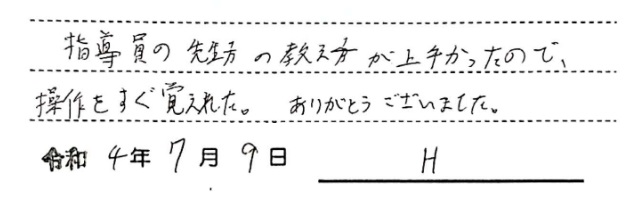 指導員の先生方の教え方が上手かったので、
操作をすぐ覚えれた。 ありがとうございました。
令和 4年 7月 9日 H